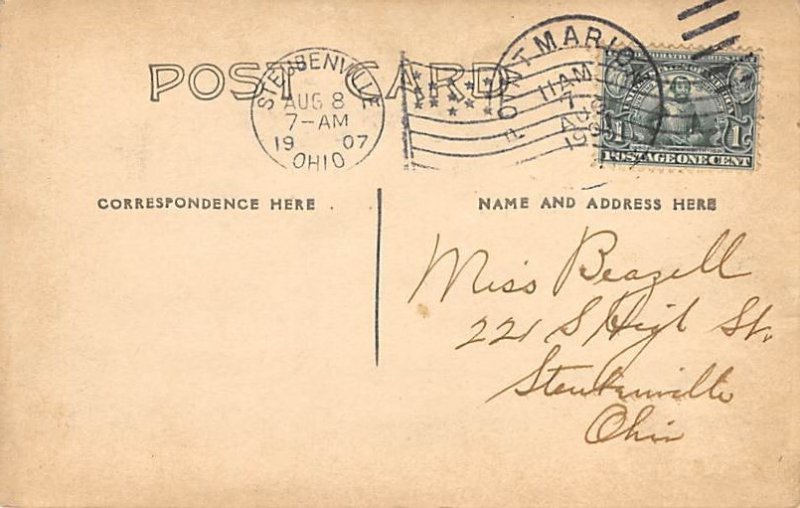 POST CARD
STEUBENVILLE
AUG 8
7-AM
19 07
OHIO
POINT MARION
11 AM
7
AUG
1
POSTAGE ONE CENT
CORRESPONDENCE HERE
NAME AND ADDRESS HERE
Miss Beazell
221 S High St.
Steubenville
Ohio